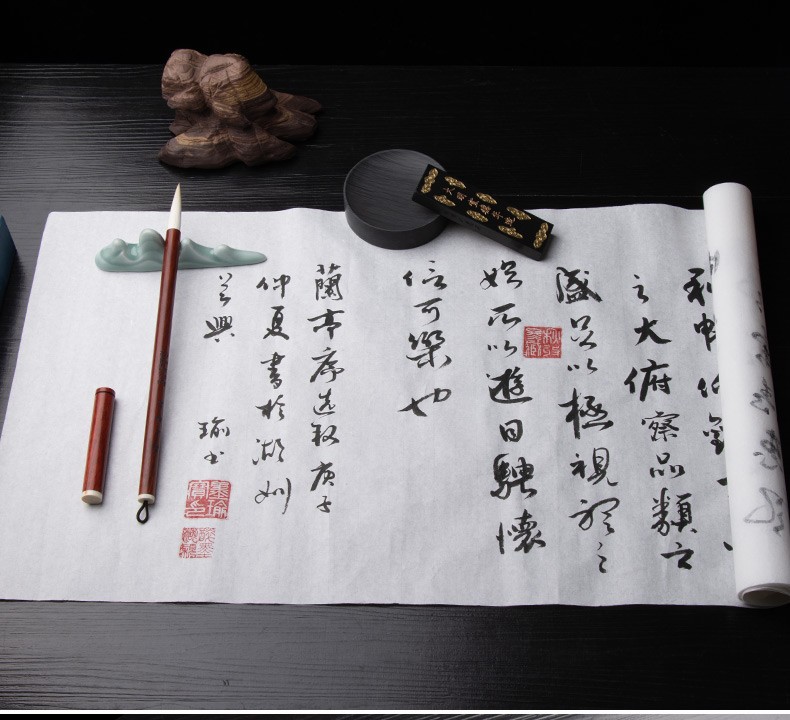 和暢仰觀
之大俯察品類之
盛足以極視聽之
娛所以遊目騁懷
信可樂也
蘭亭序選敘庚子
仲夏書於湖州
吳興
瑜書